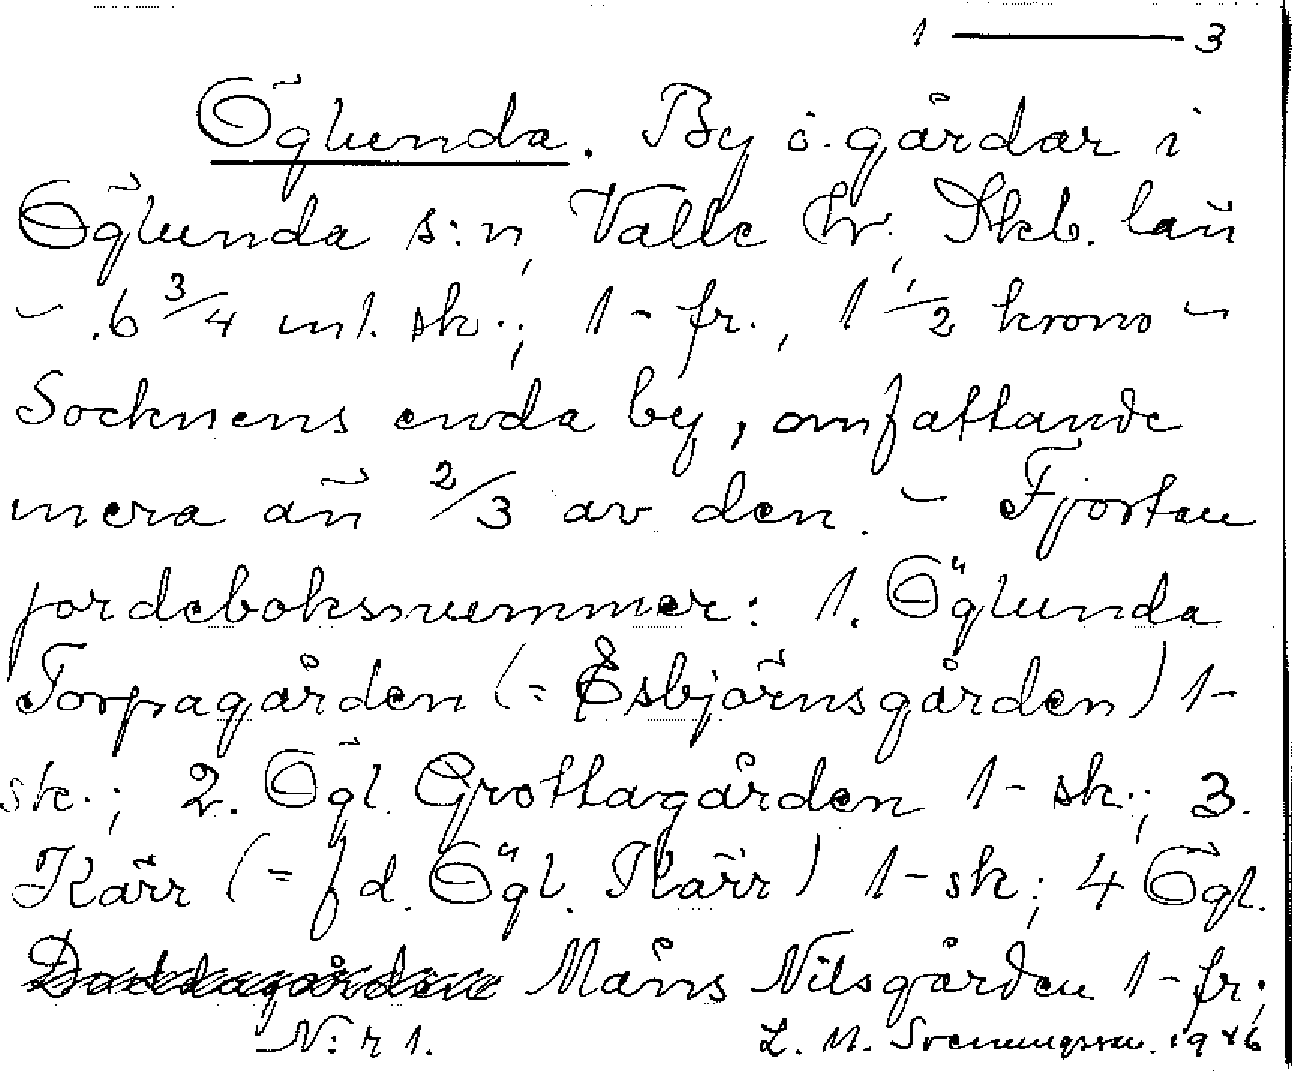 1 — 3
Öglunda. By o. gårdar i
Öglunda s:n, Valle hr., Skb. län
- 6 3/4 mt. sk.; 1 - fr., 1 1/2 krono -
Socknens enda by, omfattande
mera än 2/3 av den. - Fjorton
jordeboksnummer: 1. Öglunda
Torpagården (= Esbjörnsgården) 1 -
sk.; 2. Ögl. Grottagården 1 - sk.; 3.
Kärr (= f d. Ögl. Kärr) 1 - sk; 4 Ögl.
Måns Nilsgården 1 - fr;
N:r 1. L. M. Svenungsson. 1946